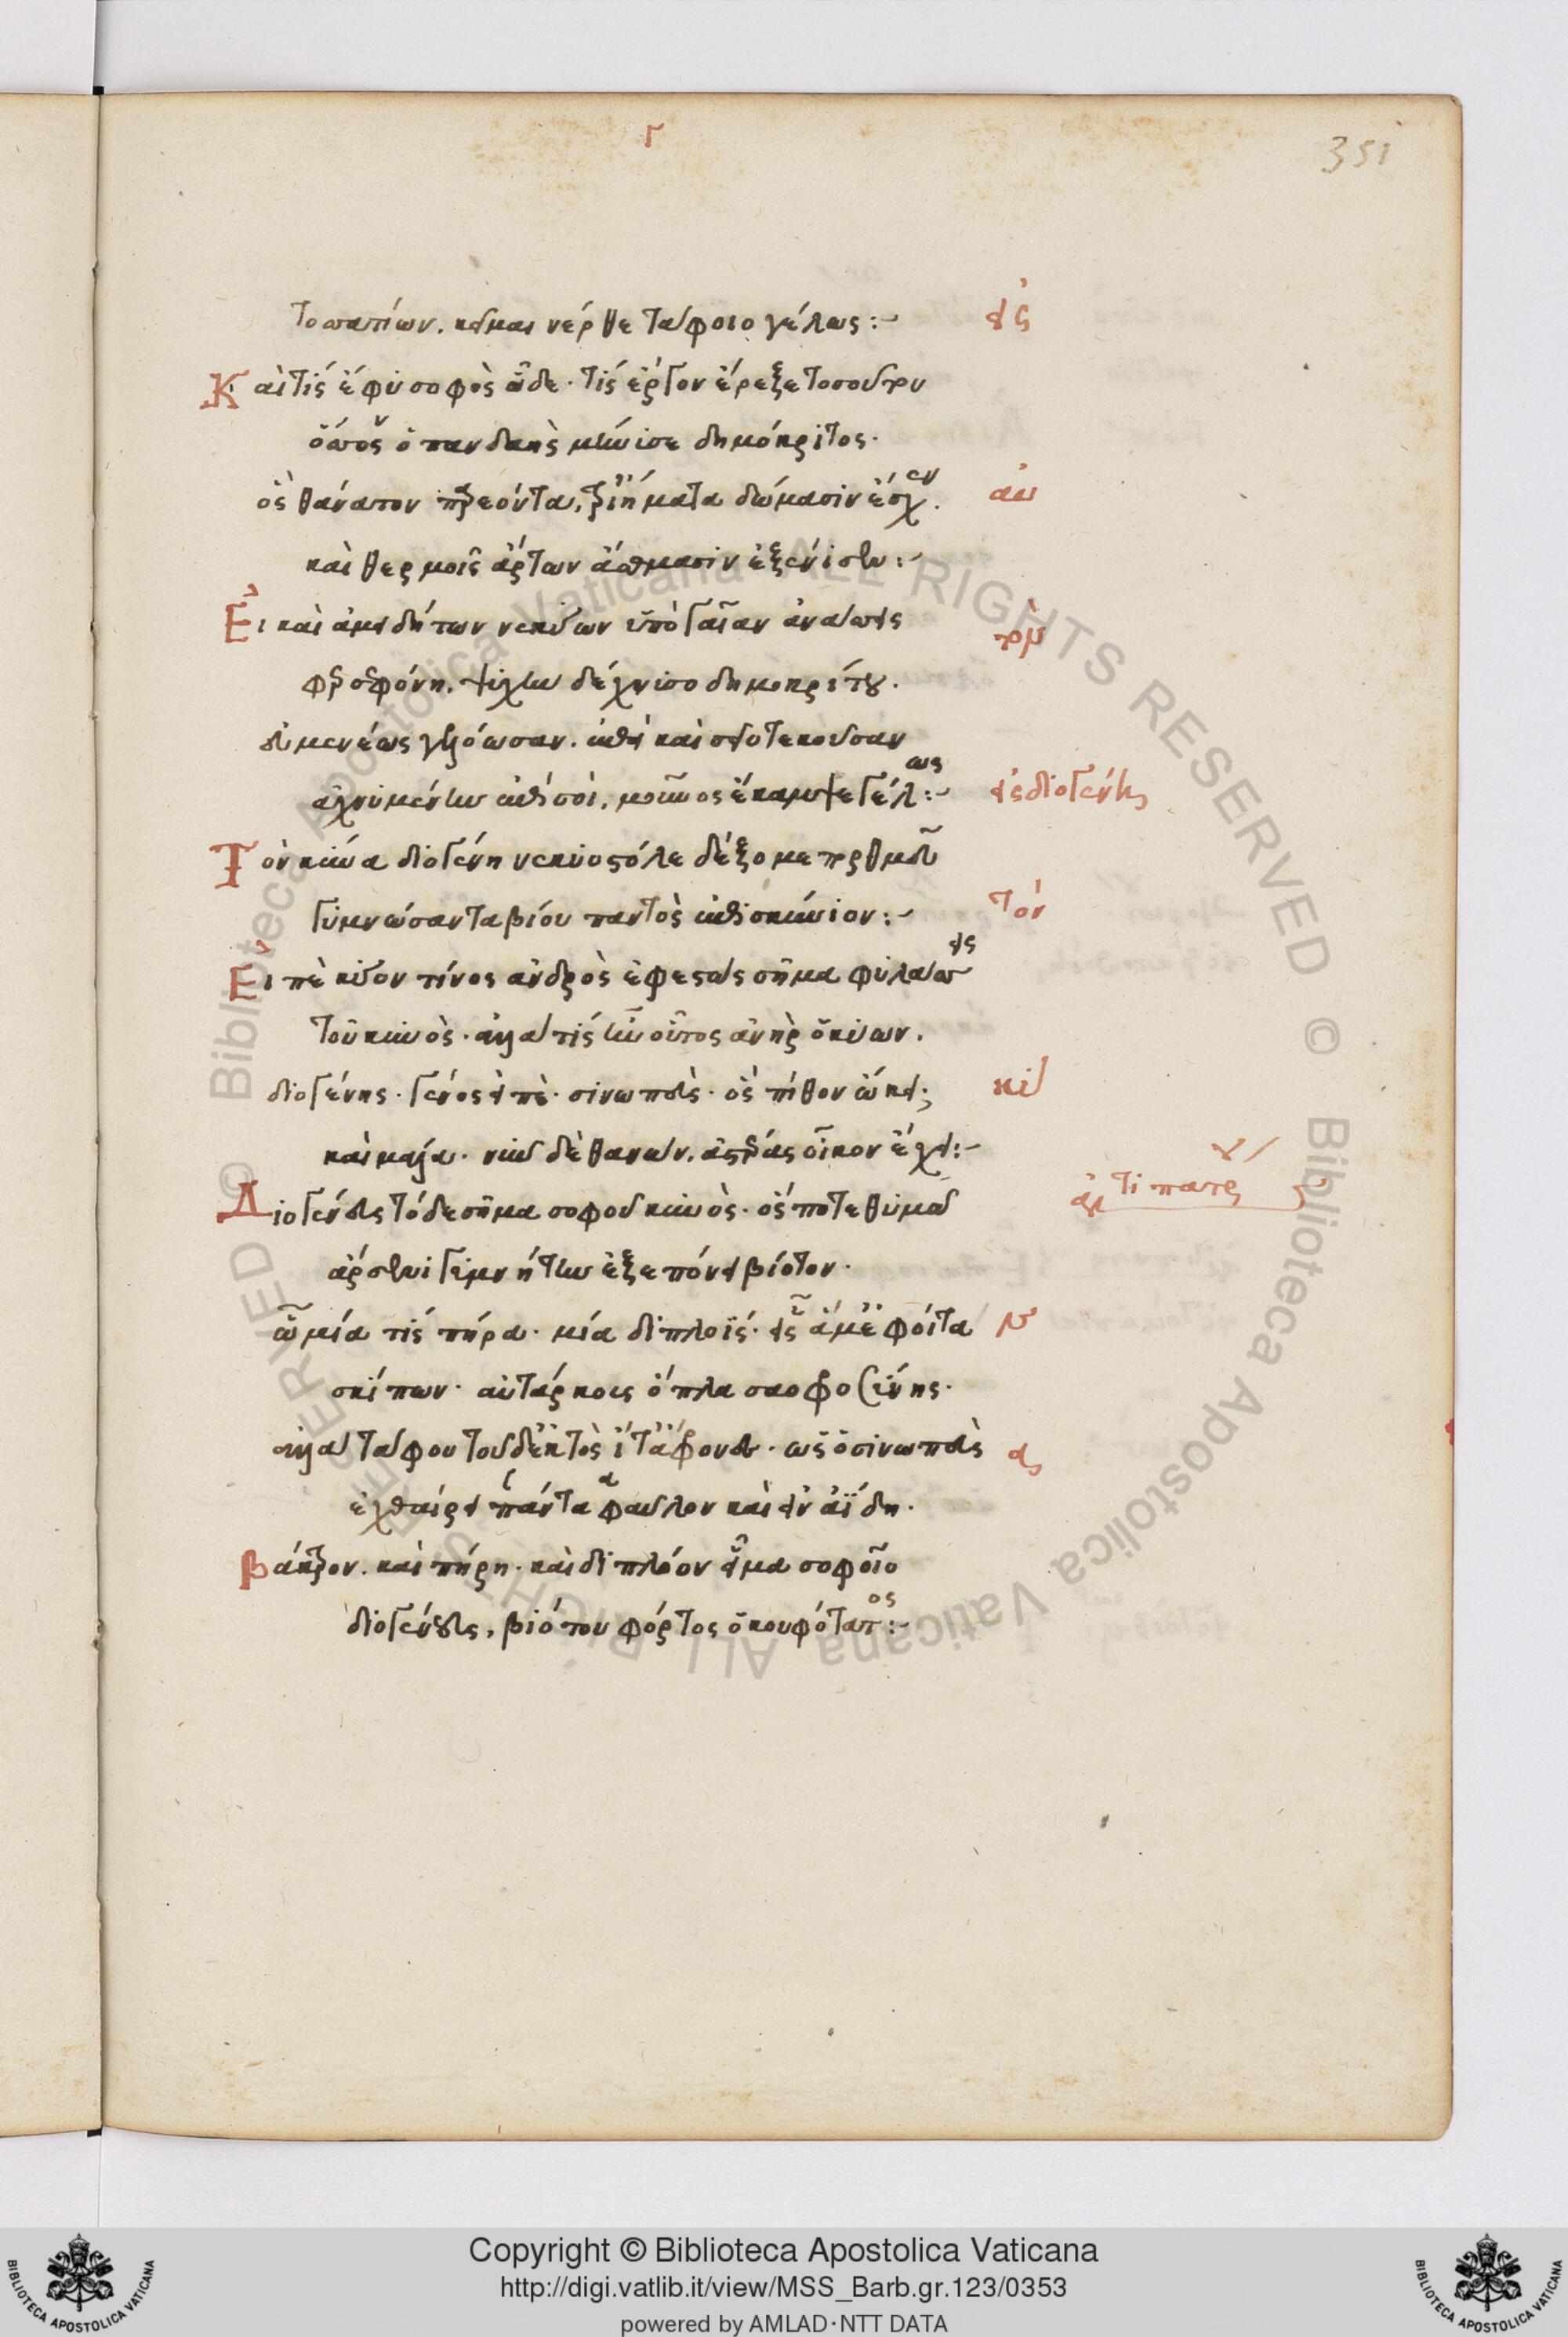 γ
351
τοσσατίων. κεῖμαι νέρθε τάφοιο γέλως:~ εἰς
Καὶ τίς ἔφυ σοφὸς ὧδε· τίς ἔργον ἔρεξε τοσοῦτον
ὅσσον ὁ πανδαὴς μήνισε δημόκριτος·
ὃς θάνατον παρεόντα, τρί ἤματα δώμασιν ἔσχεν. αὐ
καὶ θερμοῖς ἄρτων ἄσθμασιν ἐξένισεν:~
Εἰ καὶ ἀμειδήτων νεκύων ὑπὸ γαῖαν ἀνάσσεις τὸν
φερσεφόνη. ψυχὴν δέχνυσο δημοκρίτου.
εὐμενέως γελόωσαν. ἐπεὶ καὶ σεῖο τεκοῦσαν
ἀχνυμένην ἐπὶ σοὶ, μοῦνος ἔκαμψε γέλως:~ εἰς διογένην
Τὸν κύνα διογένη νεκυοστόλε δέξο με πορθμεῦ
γυμνώσαντα βίου παντὸς ἐπισκύνιον:~ τόν
Εἰπὲ κύον τίνος ἀνδρὸς ἐφεστὼς σῆμα φυλάσσεις
τοῦ κυνὸς· ἀλλὰ τίς ἦν οὗτος ἀνὴρ ὁ κύων.
διογένης· γένος εἰπὲ· σινωπεὺς· ὃς πίθον ᾤκει;
καὶ μάλα· νῦν δὲ θανὼν, ἀστέρας οἶκον ἔχει:~
Διογένευς τόδε σῆμα σοφοῦ κυνὸς· ὅς ποτε θυμῷ ἀντιπατρ
ἄρσενι γυμνήτην ἐξεπόνει βίοτον·
ᾧ μία τις πήρα· μία διπλοΐς· εἷς ἅμ' ἐφοίτα
σκίπων· αὐτάρκους ὅπλα σαοφροσύνης·
ἀλλὰ τάφου τοῦδ' ἐκτὸς ἴτ' ἄφρονες· ὡς ὁ σινωπεὺς
ἐχθαίρει πάντα φαῦλον καὶ εἰν ἀΐδῃ·
βάκτρον. καὶ πήρη· καὶ διπλόον εἷμα σοφοῖο
διογένευς, βιότου φόρτος ὁ κουφότατος:~
Copyright © Biblioteca Apostolica Vaticana
http://digi.vatlib.it/view/MSS_Barb.gr.123/0353
powered by AMLAD·NTT DATA